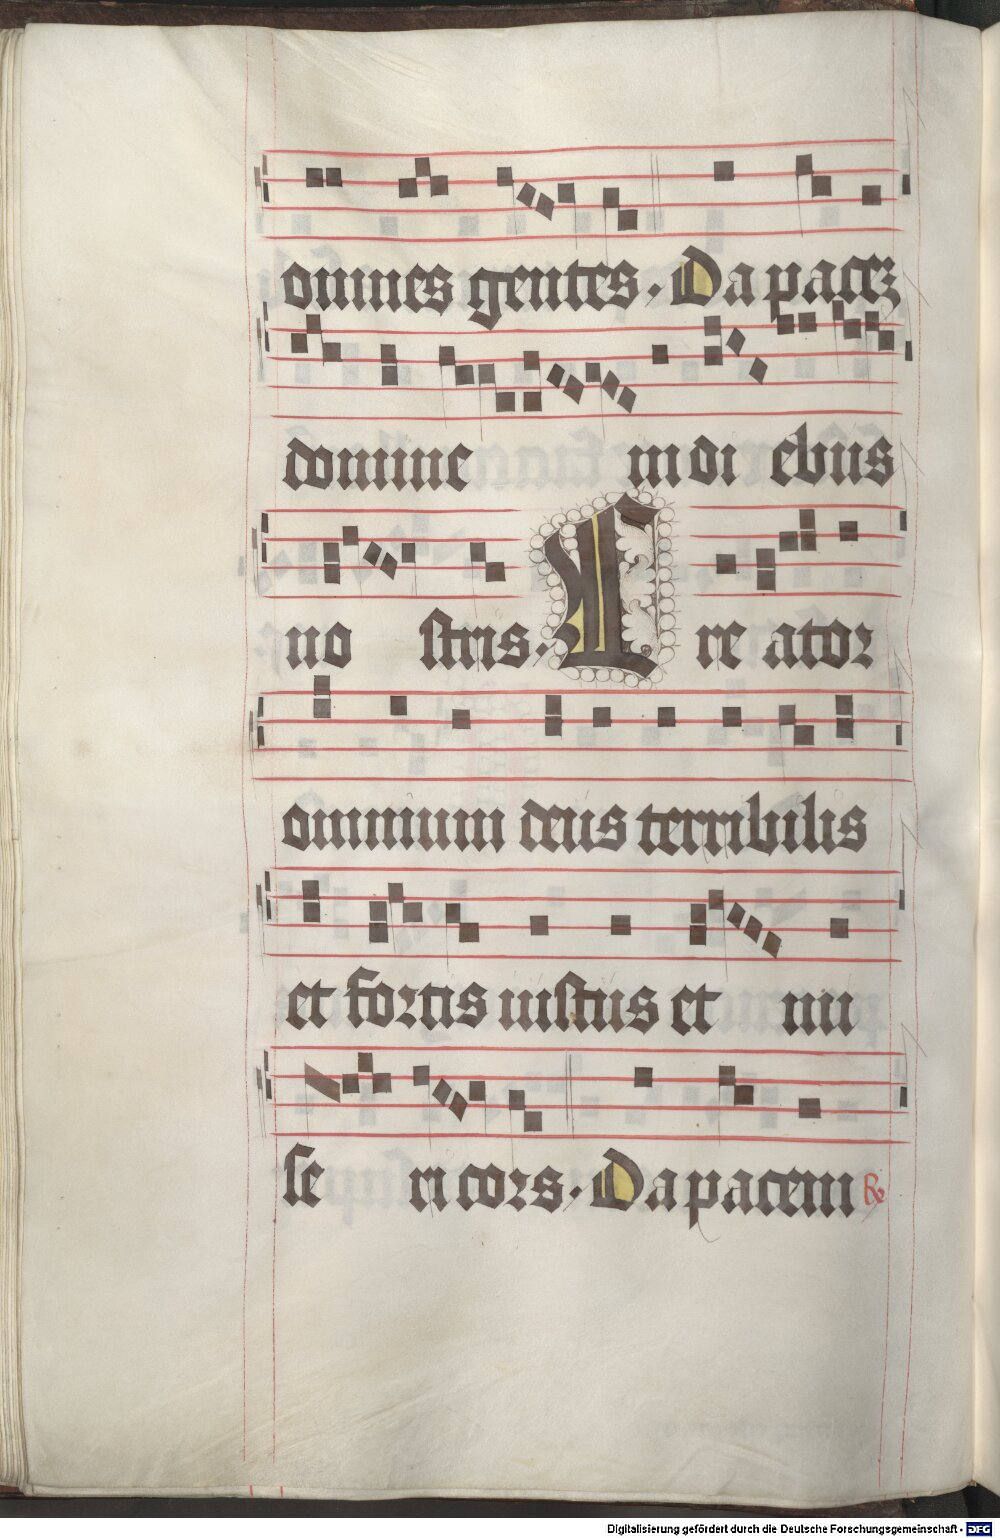 omnes gentes. Da pacez
domine in di ebus
no stris. C re ator
omnium deus terribilis
et fortis iustus et mi
se ri cors. Da pacem R
Digitalisierung gefördert durch die Deutsche Forschungsgemeinschaft - DFG